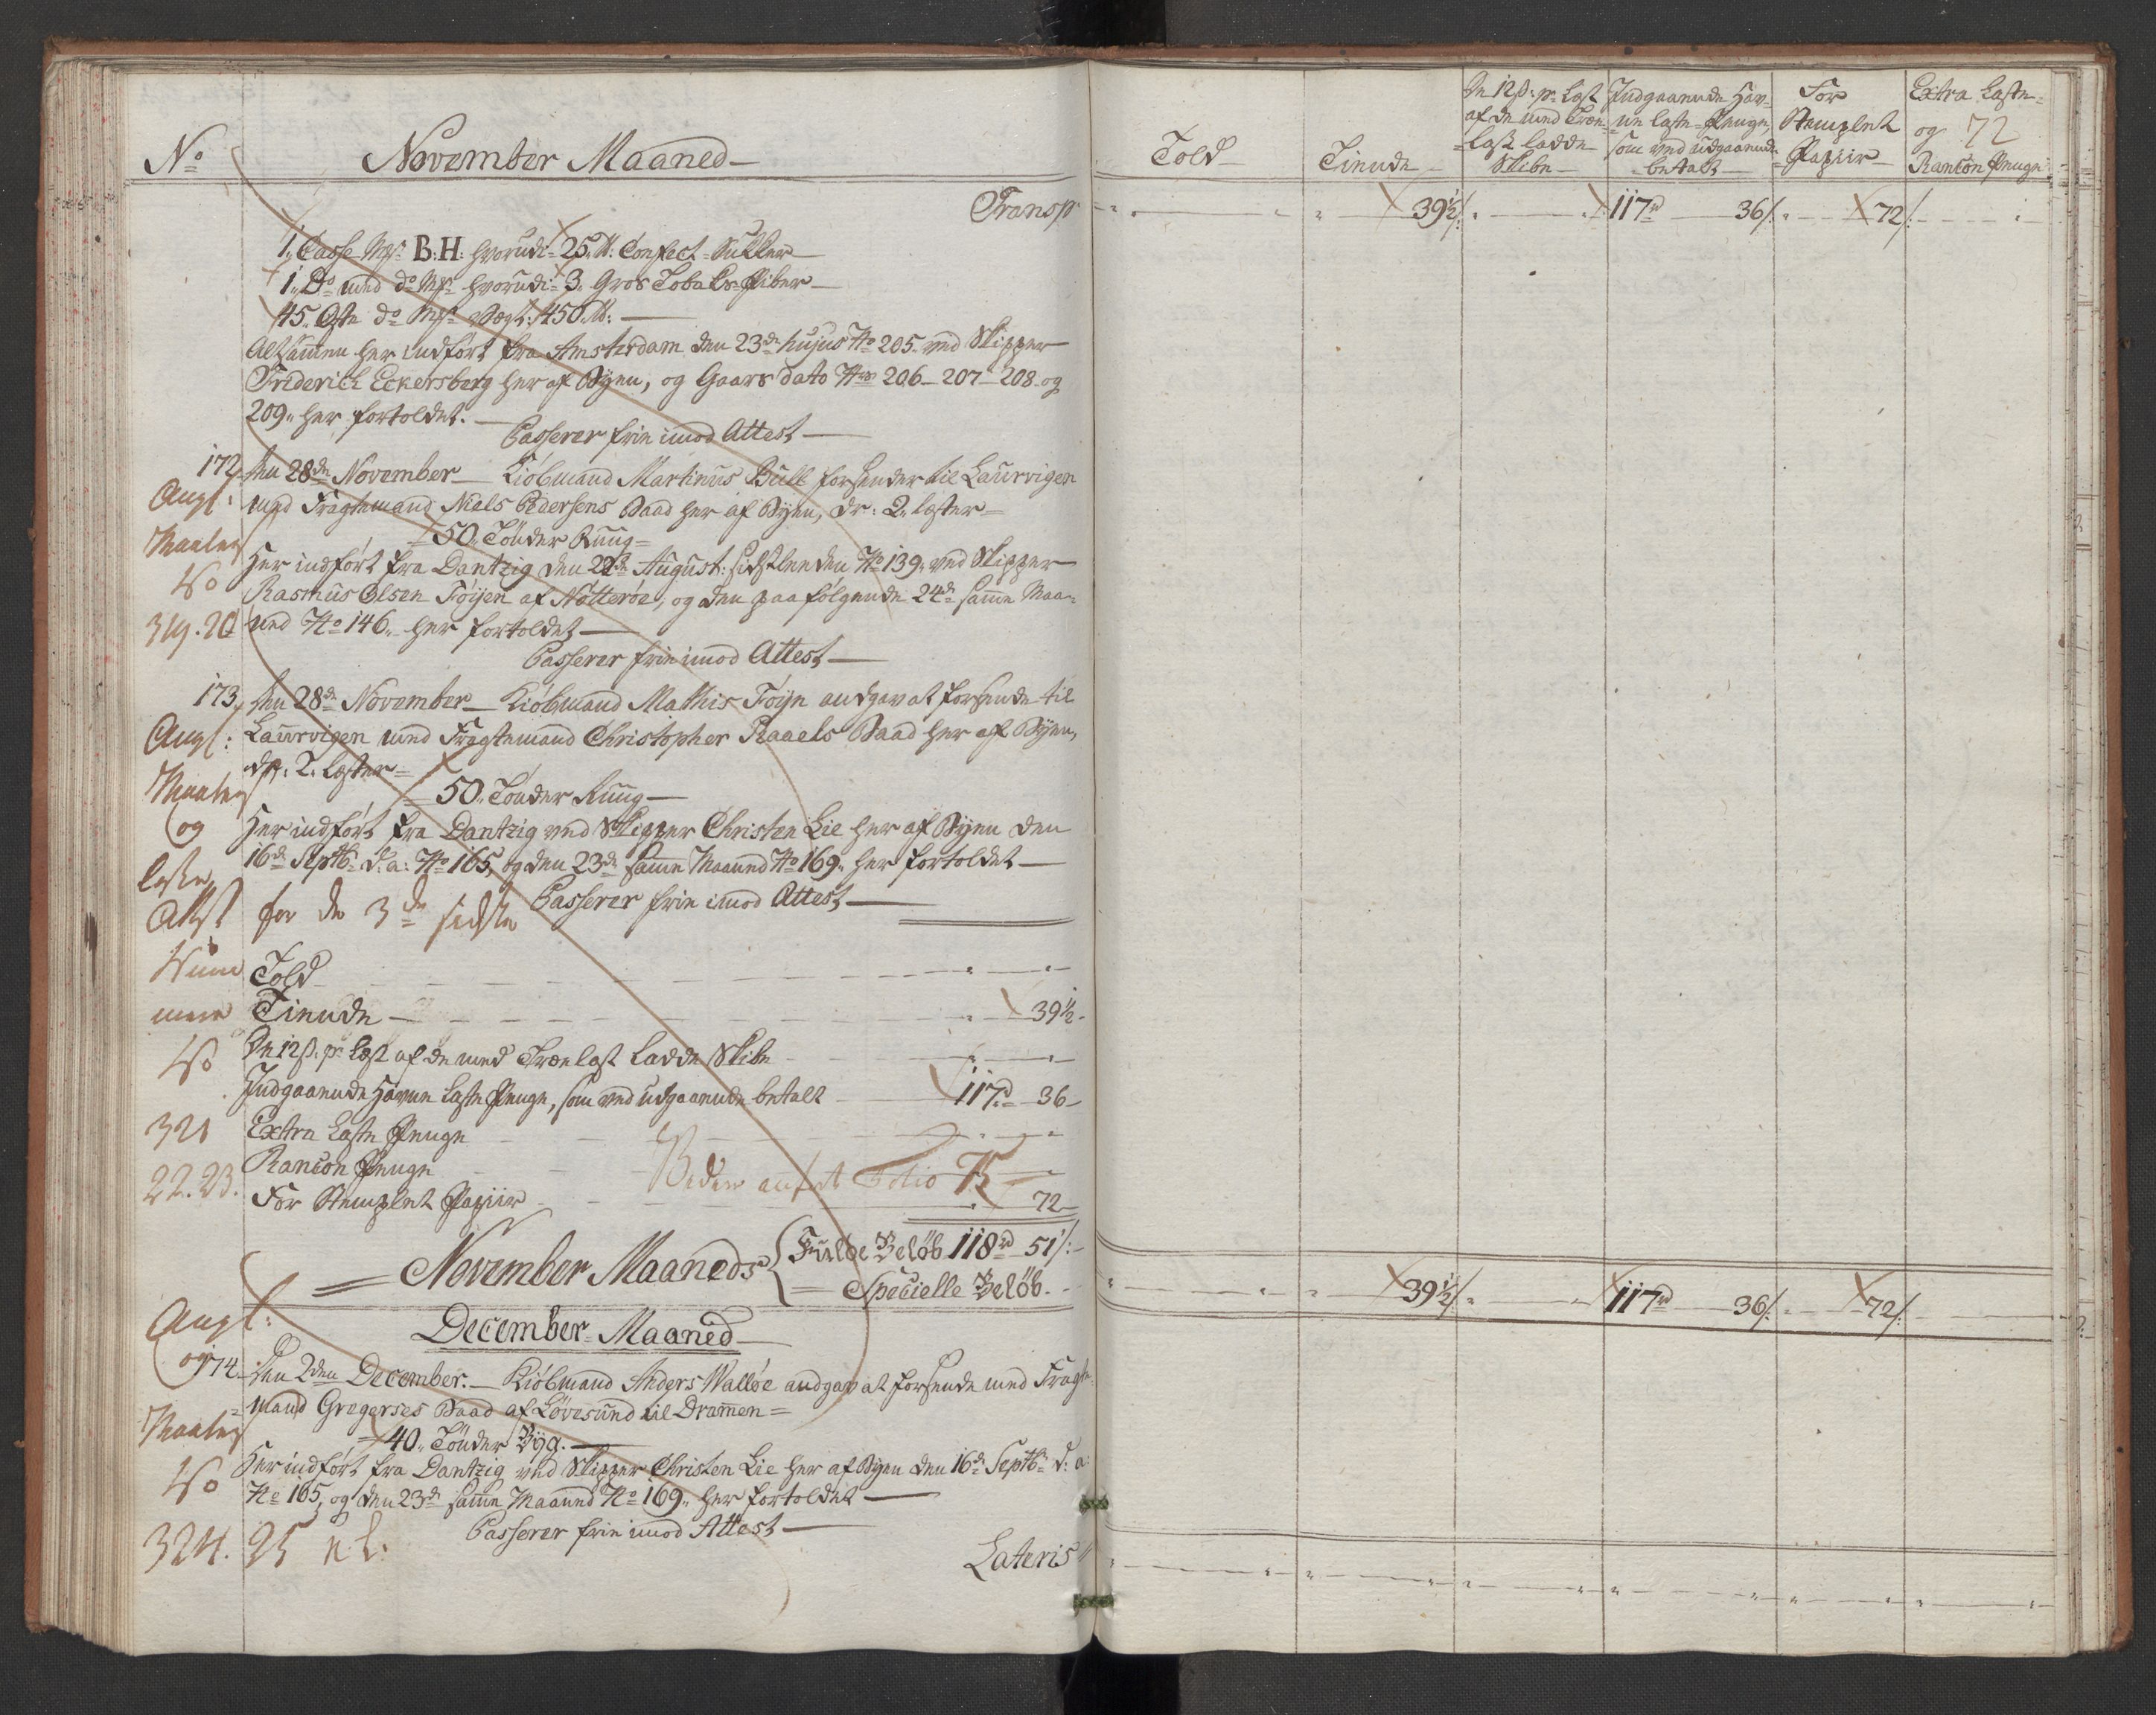 No
November Maaned
Transp
1. Casse Mrk B:H: hvorudi 25 ℔: Confect-Sukker
1. Do med do Mrk hvorudi 3. Gros Tobaks-Piber
45. Oste do Mrk Vægt: 450 ℔:
Altsammen her indført fra Amsterdam den 23de hujus No 205. ved Skipper
Friderich Eckersberg her af Byen, og Gaars dato No 206_ 207_ 208_ og
209" her fortoldet.
Passerer frie imod Attest
172. Den 28de November_ Kiøbmand Martinus Bull forsender til Laurvigen
Angl: med Fragtemand Niels Pedersens Baad her af Byen, dr: 2. læster
50. Tønder Rug
Maaler Her indført fra Dantzig den 22de August: sidstleeden No 139. ved Skipper
No Rasmus Olsen Føijen af Nøtterøe, og den paafølgende 24de samme Maa-
319. 20 ned No 146" her fortoldet
Passerer frie imod Attest
173. Den 28de November_ Kiøbmand Mathis Føyn andgav at forsende til
Angl: Laurvigen med Fragtemand Christopher Raaels Baad her af Byen,
dr: 2. læster
Maaler 50. Tønder Rug
og Her indført fra Dantzig ved Skipper Christen Lie her af Byen den
16de Septb. d: a: No 165, og den 23de samme Maaned No 169. her fortoldet
Passerer frie imod Attest
læste
Attst for de 3de sidste
Num Told
mere Tiende 39½
No De 12 s. pr. Læst af de med Trælast ladde Skibe
Indgaaende Havne Læste Penge, som ved udgaaende betalt 117rd 36
321 Extra Læste Penge
22.23. Rancon Penge
Folio 75
For Stemplet Papiir 72
November Maaneds
Fulde Beløb 118rd 51s:
Specielle Beløb.
Angl:
December Maaned
og 174. Den 2den December._ Kiøbmand Anders Walløe andgav at forsende med Fragte-
mand Gregerses Baad af Løvesund til Drammen
Maaler 40. Tønder Byg.
Her indført fra Dantzig ved Skipper Christen Lie her af Byen den 16de Septb. d: a:
No No 165, og den 23de samme Maaned No 169. her fortoldet
Passerer frie imod Attest
324. 25
Lateris
Told
Tiende
De 12 s: pr. Læst
af de med Træ-
last ladde
Skibe
Indgaaende Hav-
ne læste-Penge,
som ved udgaaende
betalt
For
Stemplet
Papiir
Extra Læste
og 72
Rancon Penge
39½ s: 117rd 36 s: 72 s:
39½ s: 117rd 36 s: 72 s: